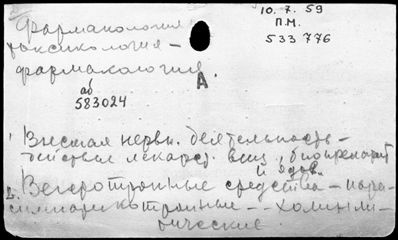 Фармакология и
токсикология -
фармакология.
А.
10.7.59
П.М.
533 776
аб
583024
1. Высшая нервн. деятельность -
действие лекарст. вещ., биопрепарат
и ядов.
2. Вегетотропные средства - пара-
симпатикотропные - - холинэли-
тические